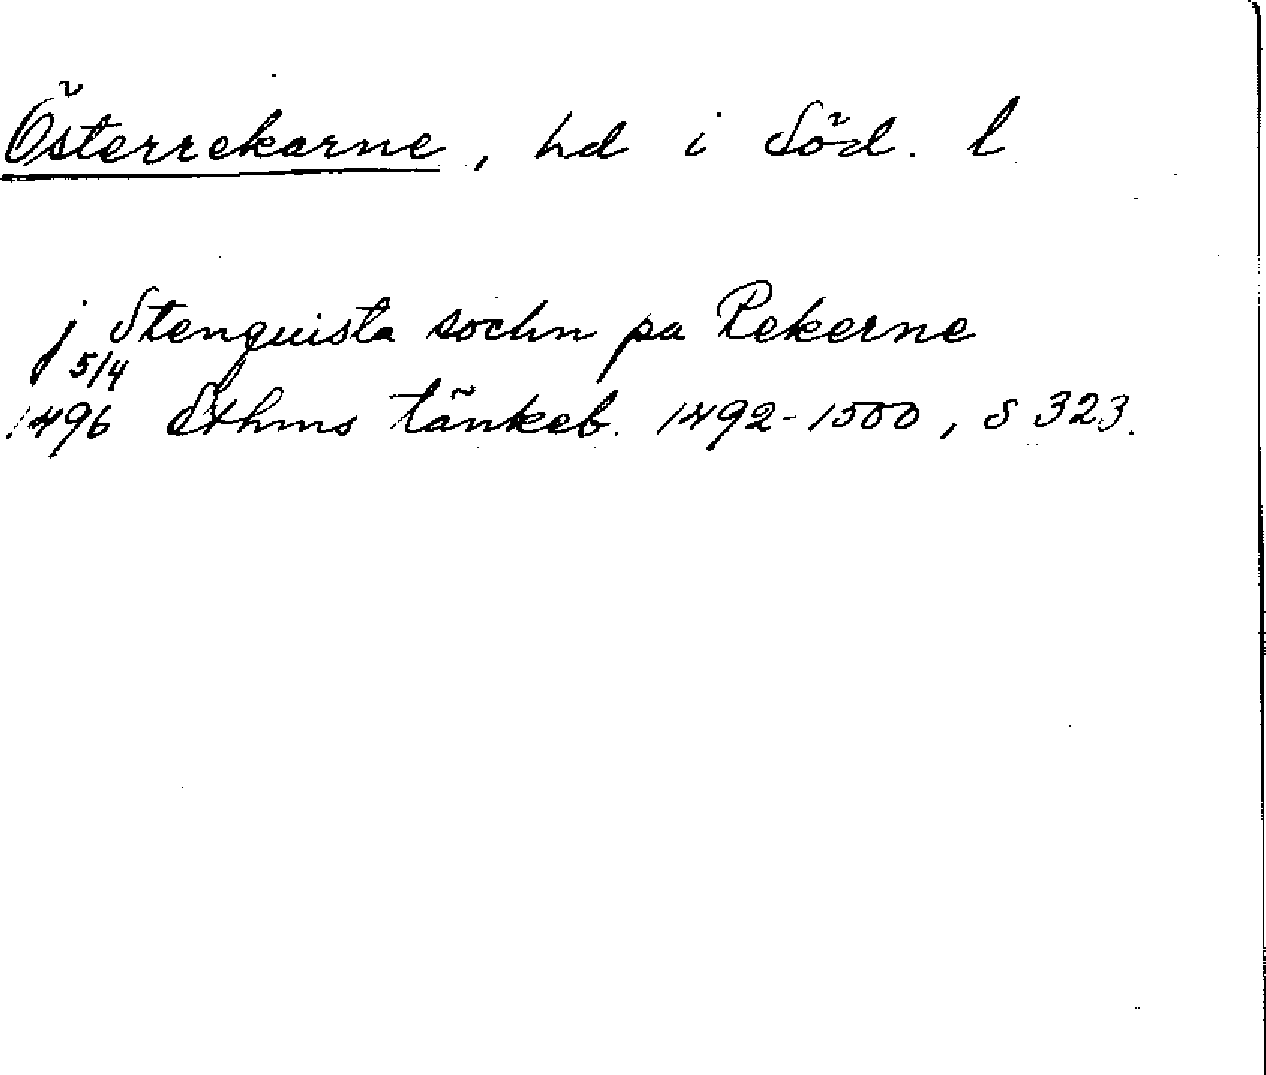 Österrekarne, hd i Söd. l
j Stenquista sochn pa Rekerne
5/4
1496 Sthms tänkeb. 1492-1500, s 323.